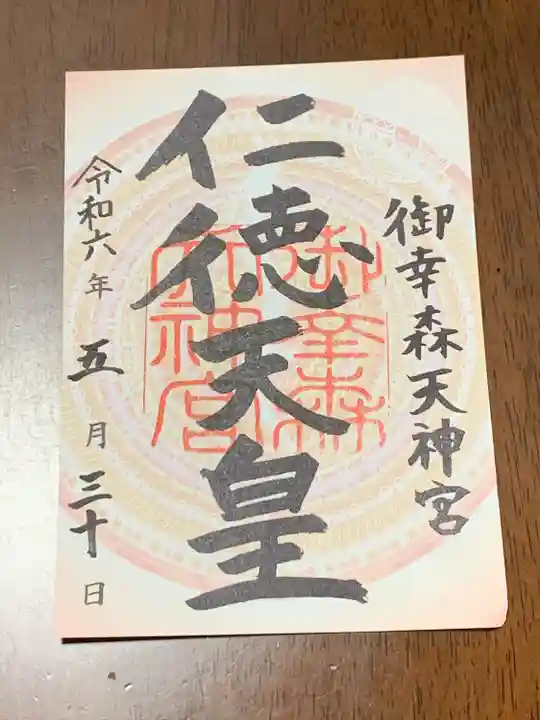 御幸森天神宮
仁徳天皇
御幸森
天神宮
令和六年 五月三十日